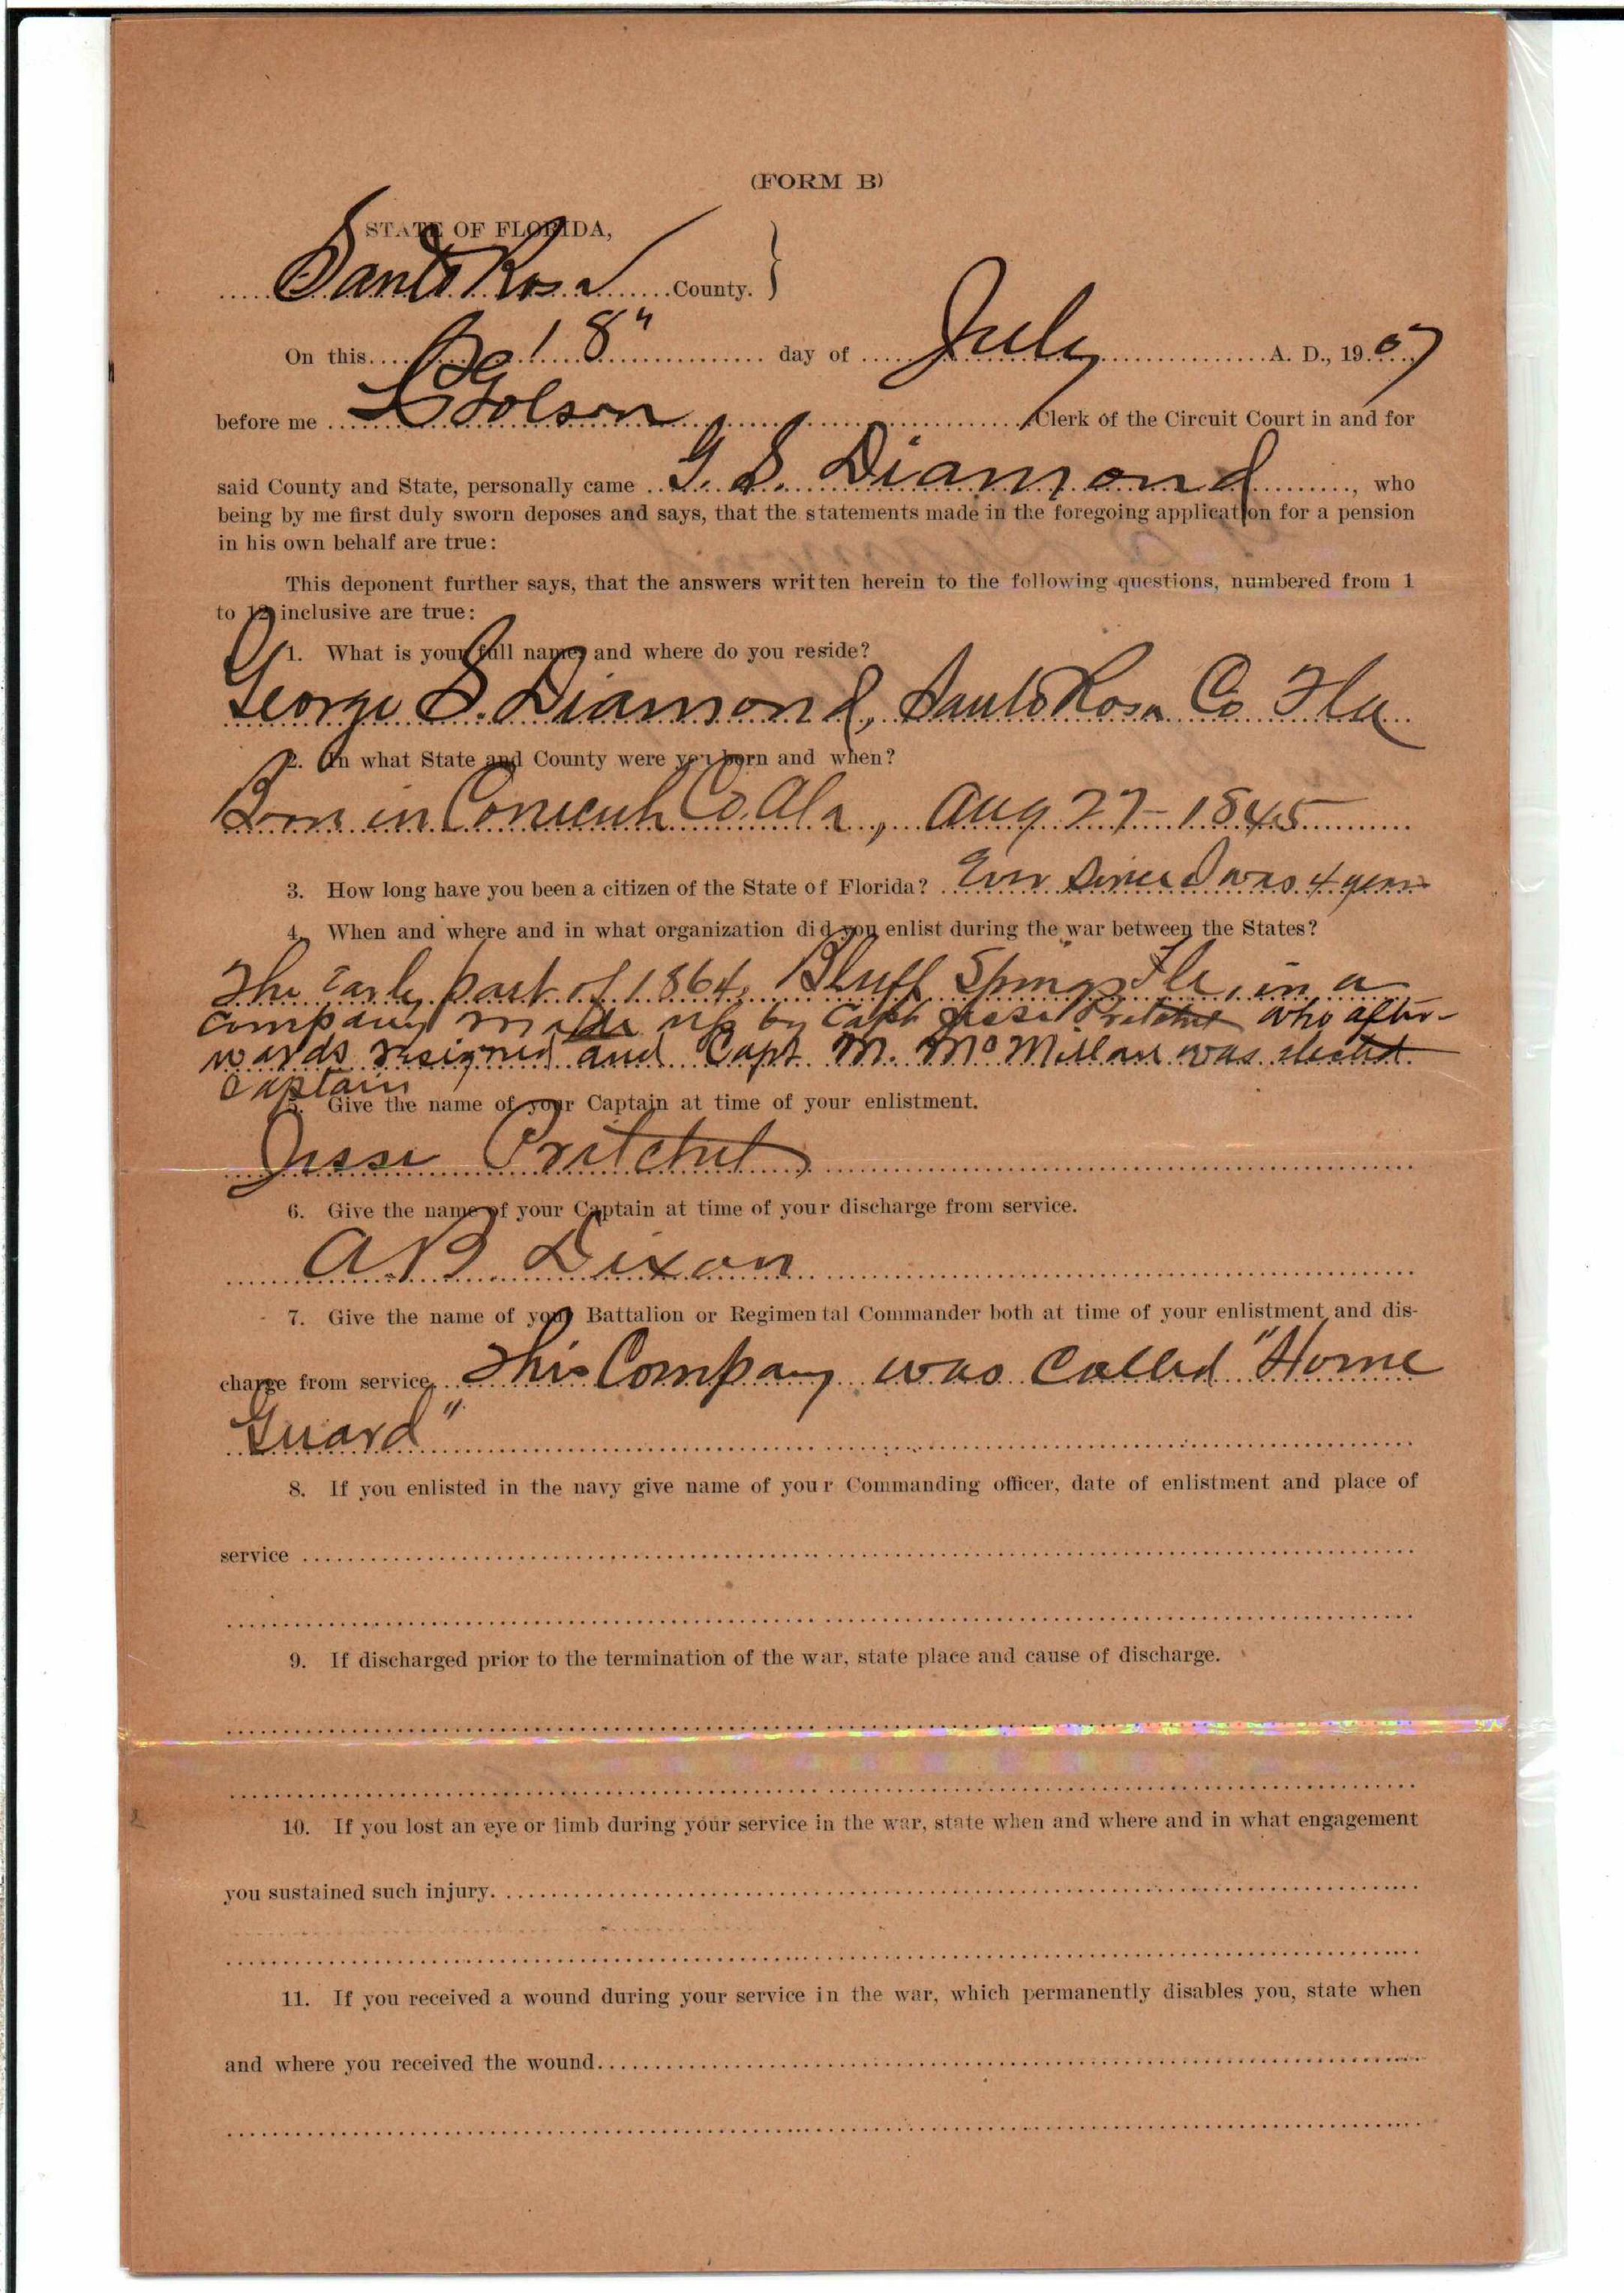 (FORM B)
STATE OF FLORIDA,
Santa Rosa County.
On this 18" day of July A. D., 1907
before me Golson Clerk of the Circuit Court in and for
said County and State, personally came G. S. Diamond, who
being by me first duly sworn deposes and says, that the statements made in the foregoing application for a pension
in his own behalf are true:
This deponent further says, that the answers written herein to the following questions, numbered from 1
to 12 inclusive are true:
1. What is your full name, and where do you reside?
George S. Diamond, Santa Rosa Co Fla
2. In what State and County were you born and when?
Born in Conecuh Co. Ala, Aug 27-1845
3. How long have you been a citizen of the State of Florida? Ever Since I was 4 years
4. When and where and in what organization did you enlist during the war between the States?
The Early part of 1864, Bluff Springs Fla, in a
company made up by Capt Jesse Pritchet who after-
wards resigned and Capt. M. McMillan was elected
Captain
5. Give the name of your Captain at time of your enlistment.
Jesse Pritchet
6. Give the name of your Captain at time of your discharge from service.
A B Dixon
7. Give the name of your Battalion or Regimental Commander both at time of your enlistment and dis-
charge from service, This Company was Called "Home
Guard"
8. If you enlisted in the navy give name of your Commanding officer, date of enlistment and place of
service
9. If discharged prior to the termination of the war, state place and cause of discharge.
10. If you lost an eye or limb during your service in the war, state when and where and in what engagement
you sustained such injury.
11. If you received a wound during your service in the war, which permanently disables you, state when
and where you received the wound.